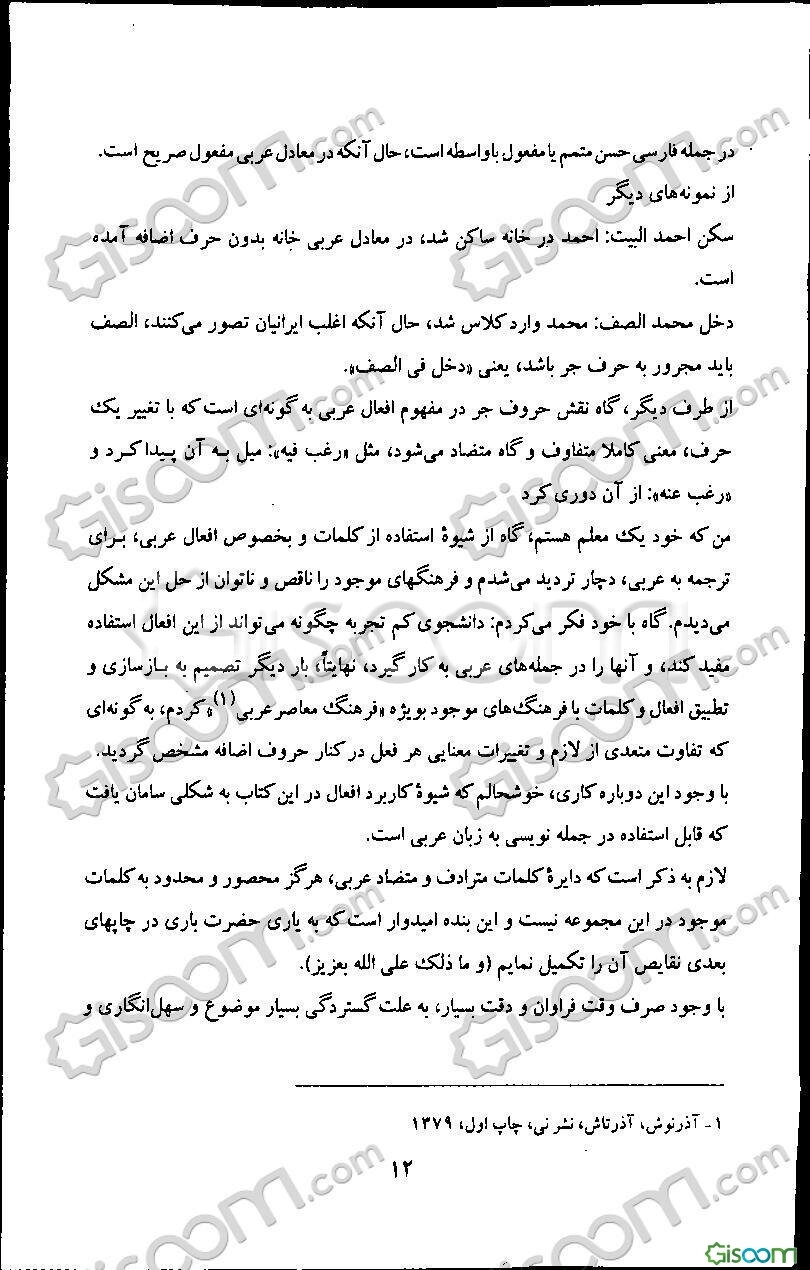 در جمله فارسی حسن متمم یا مفعول باواسطه است، حال آنکه در معادل عربی مفعول صریح است.
از نمونه‌های دیگر
سکن احمد البیت: احمد در خانه ساکن شد، در معادل عربی خانه بدون حرف اضافه آمده
است.
دخل محمد الصف: محمد وارد کلاس شد، حال آنکه اغلب ایرانیان تصور می‌کنند، الصف
باید مجرور به حرف جر باشد، یعنی «دخل فی الصف».
از طرف دیگر، گاه نقش حروف جر در مفهوم افعال عربی به گونه‌ای است که با تغییر یک
حرف، معنی کاملا متفاوت و گاه متضاد می‌شود، مثل «رغب فیه»: میل به آن پیدا کرد و
«رغب عنه»: از آن دوری کرد
من که خود یک معلم هستم، گاه از شیوۀ استفاده از کلمات و بخصوص افعال عربی، برای
ترجمه به عربی، دچار تردید می‌شدم و فرهنگهای موجود را ناقص و ناتوان از حل این مشکل
می‌دیدم. گاه با خود فکر می‌کردم: دانشجوی کم تجربه چگونه می‌تواند از این افعال استفاده
مفید کند، و آنها را در جمله‌های عربی به کار گیرد، نهایتاً، بار دیگر تصمیم به بازسازی و
تطبیق افعال و کلمات با فرهنگ‌های موجود بویژه «فرهنگ معاصر عربی(۱)» کردم، به گونه‌ای
که تفاوت متعدی از لازم و تغییرات معنایی هر فعل در کنار حروف اضافه مشخص گردید.
با وجود این دوباره کاری، خوشحالم که شیوۀ کاربرد افعال در این کتاب به شکلی سامان یافت
که قابل استفاده در جمله نویسی به زبان عربی است.
لازم به ذکر است که دایرۀ کلمات مترادف و متضاد عربی، هرگز محصور و محدود به کلمات
موجود در این مجموعه نیست و این بنده امیدوار است که به یاری حضرت باری در چاپهای
بعدی نقایص آن را تکمیل نمایم (و ما ذلک علی الله بعزیز).
با وجود صرف وقت فراوان و دقت بسیار، به علت گستردگی بسیار موضوع و سهل‌انگاری و
۱- آذرنوش، آذرتاش، نشر نی، چاپ اول، ۱۳۷۹
۱۲
Gisoom